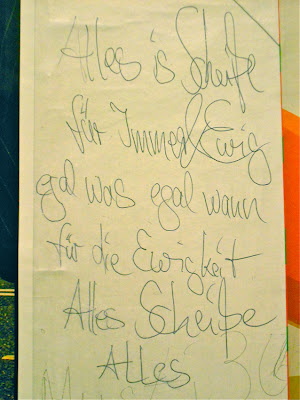 Alles is Scheiße
für Immer & Ewig
egal was egal wann
für die Ewigkeit
Alles Scheiße
Alles